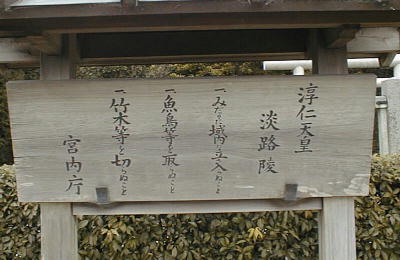 淳仁天皇
淡路陵
一みだりに域内に立入らぬこと
一魚鳥等を取らぬこと
一竹木等を切らぬこと
宮内庁